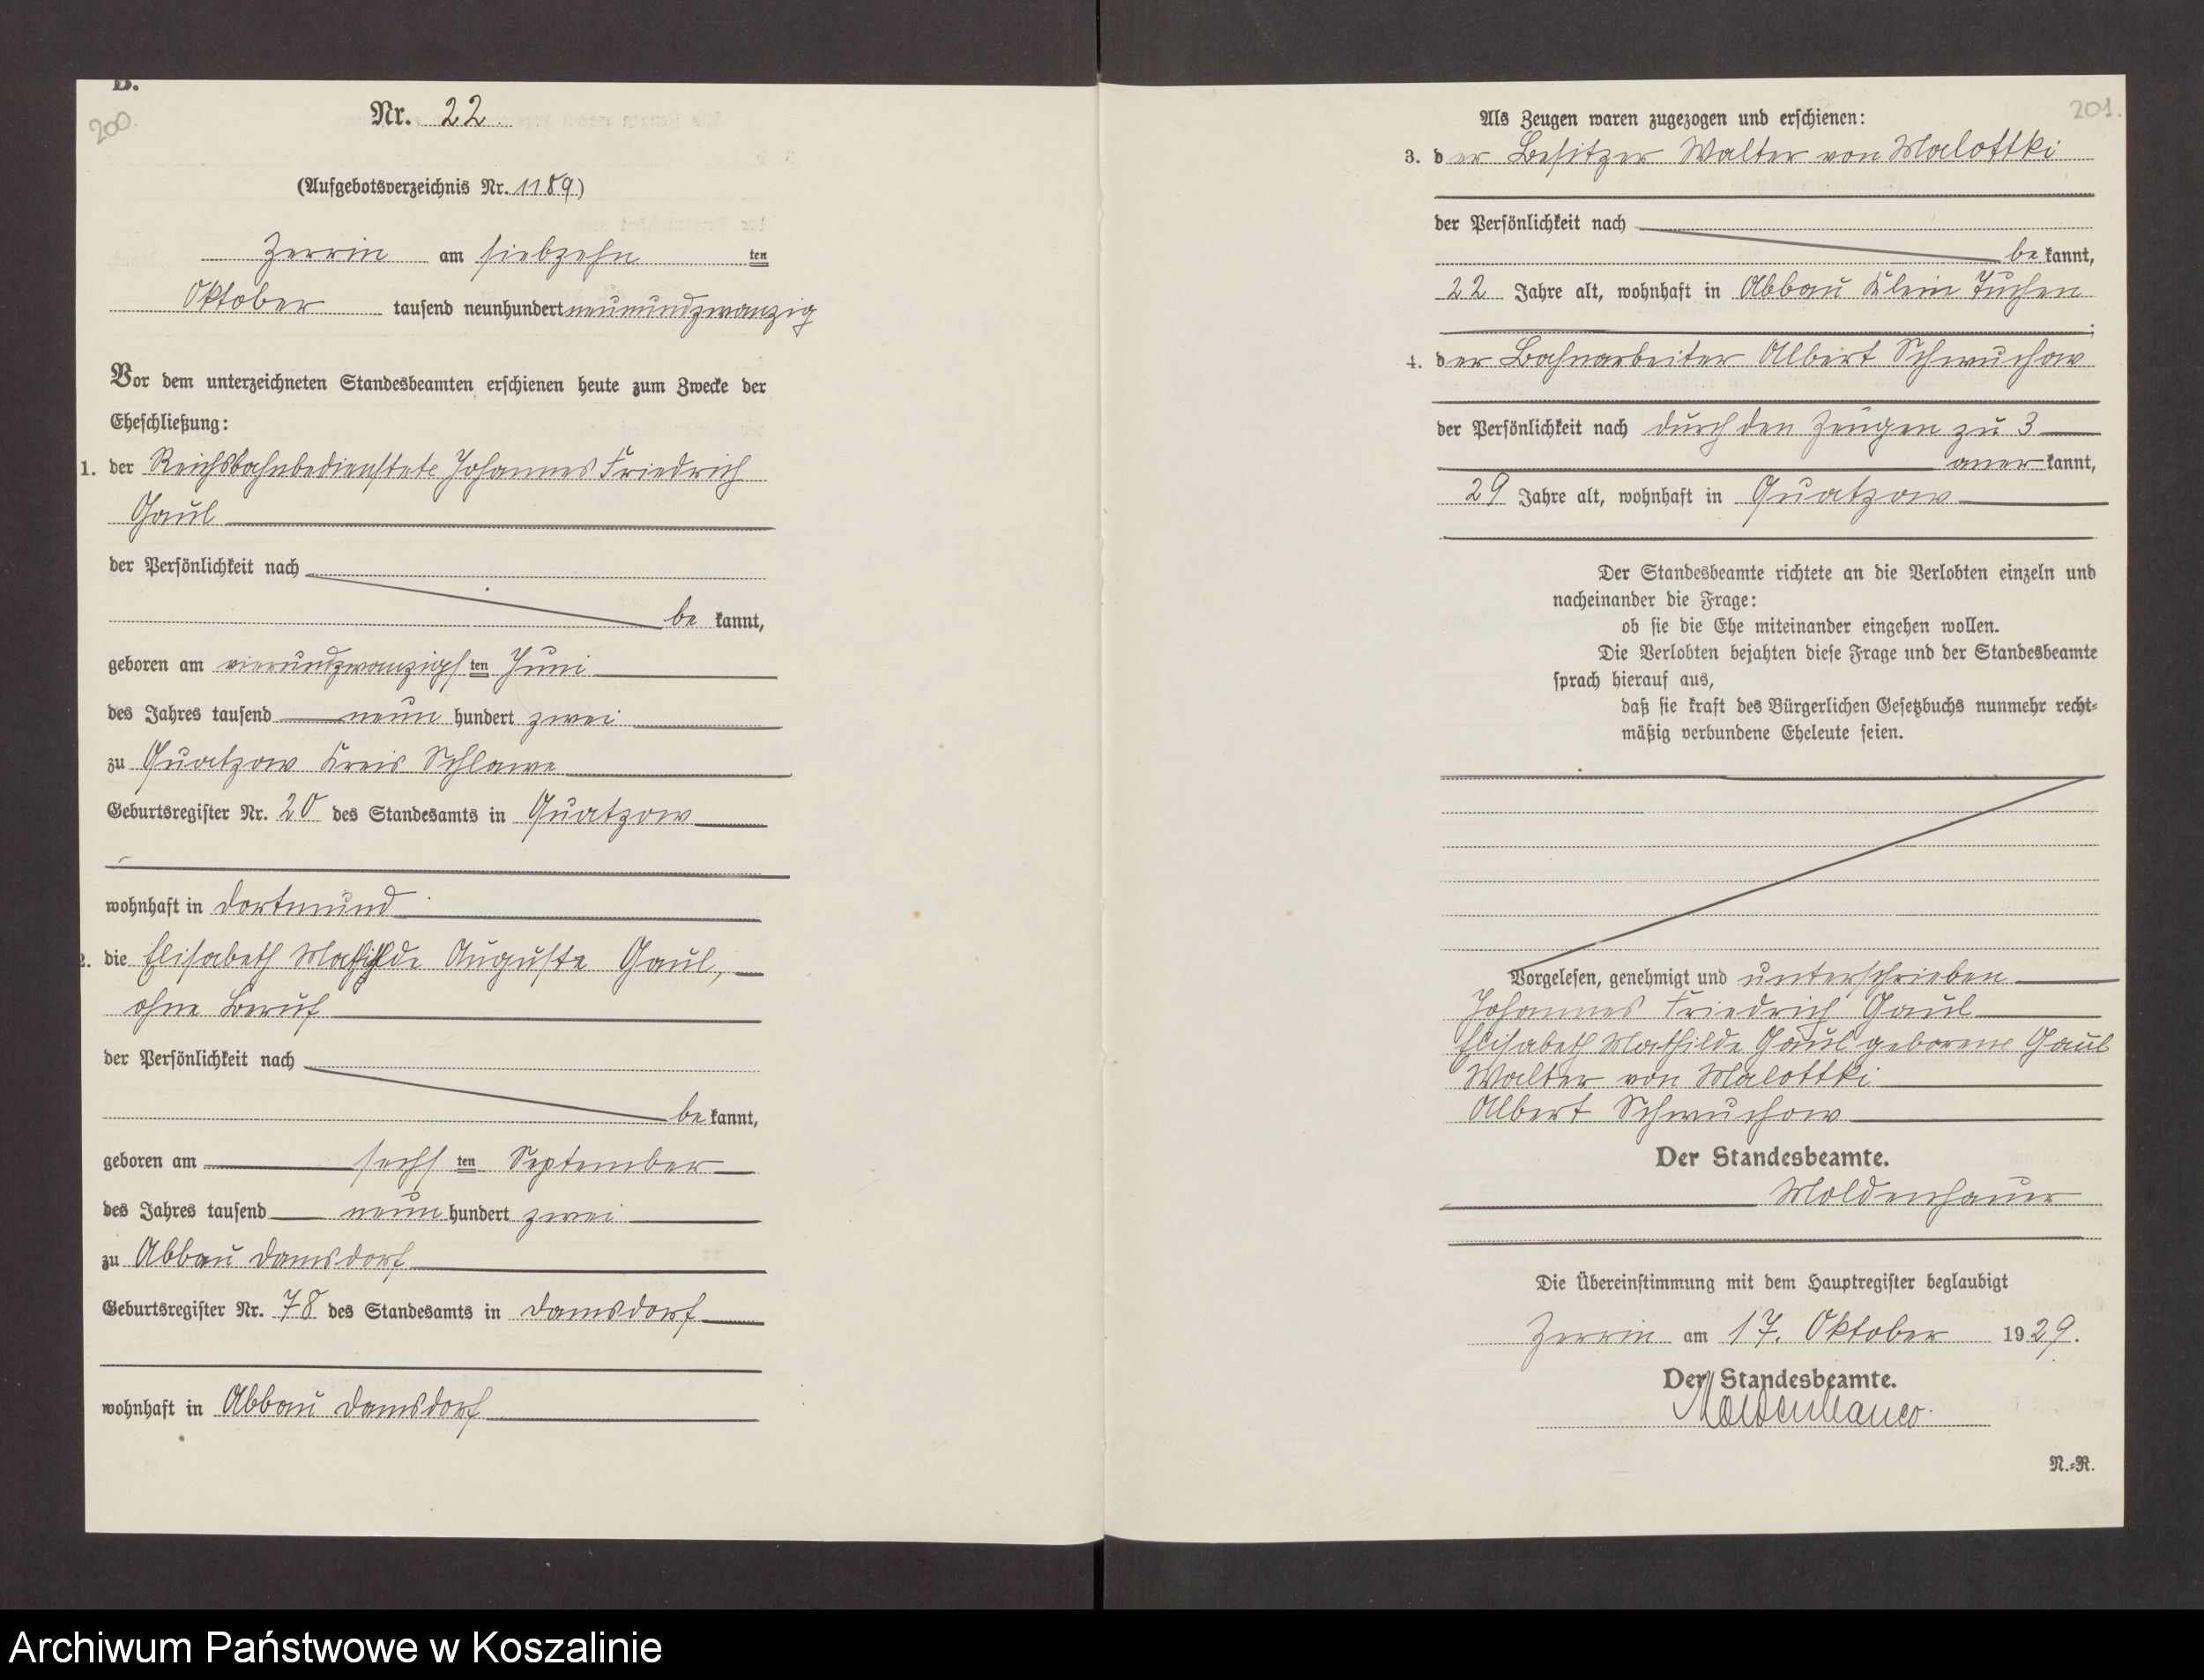 B.
200.
Nr. 22.
(Aufgebotsverzeichnis Nr. 1189)
Zerrin am siebzehn ten
Oktober tausend neunhundert neunundzwanzig
Vor dem unterzeichneten Standesbeamten erschienen heute zum Zwecke der
Eheschließung:
1. der Reichsbahnbedienstete Johannes Friedrich
Gaul
der Persönlichkeit nach
be kannt,
geboren am vierundzwanzigs ten Juni
des Jahres tausend neun hundert zwei
zu Quatzow Kreis Schlawe
Geburtsregister Nr. 20 des Standesamts in Quatzow
wohnhaft in Dortmund
2. die Elisabeth Mathilde Auguste Gaul,
ohne Beruf
der Persönlichkeit nach
be kannt,
geboren am sechs ten September
des Jahres tausend neun hundert zwei
zu Abbau Damsdorf
Geburtsregister Nr. 78 des Standesamts in Damsdorf
wohnhaft in Abbau Damsdorf
201.
Als Zeugen waren zugezogen und erschienen:
3. der Besitzer Walter von Malottki
der Persönlichkeit nach
be kannt,
22 Jahre alt, wohnhaft in Abbau Klein Tuchen
;
4. der Bahnarbeiter Albert Schwuchow
der Persönlichkeit nach durch den Zeugen zu 3
aner kannt,
29 Jahre alt, wohnhaft in Quatzow
Der Standesbeamte richtete an die Verlobten einzeln und
nacheinander die Frage:
ob sie die Ehe miteinander eingehen wollen.
Die Verlobten bejahten diese Frage und der Standesbeamte
sprach hierauf aus,
daß sie kraft des Bürgerlichen Gesetzbuchs nunmehr recht-
mäßig verbundene Eheleute seien.
Vorgelesen, genehmigt und unterschrieben
Johannes Friedrich Gaul
Elisabeth Mathilde Gaul geborene Gaul
Walter von Malottki
Albert Schwuchow
Der Standesbeamte.
Moldenhauer
Die Übereinstimmung mit dem Hauptregister beglaubigt
Zerrin am 17. Oktober 1929.
Der Standesbeamte.
Moldenhauer.
N.-R.
Archiwum Państwowe w Koszalinie